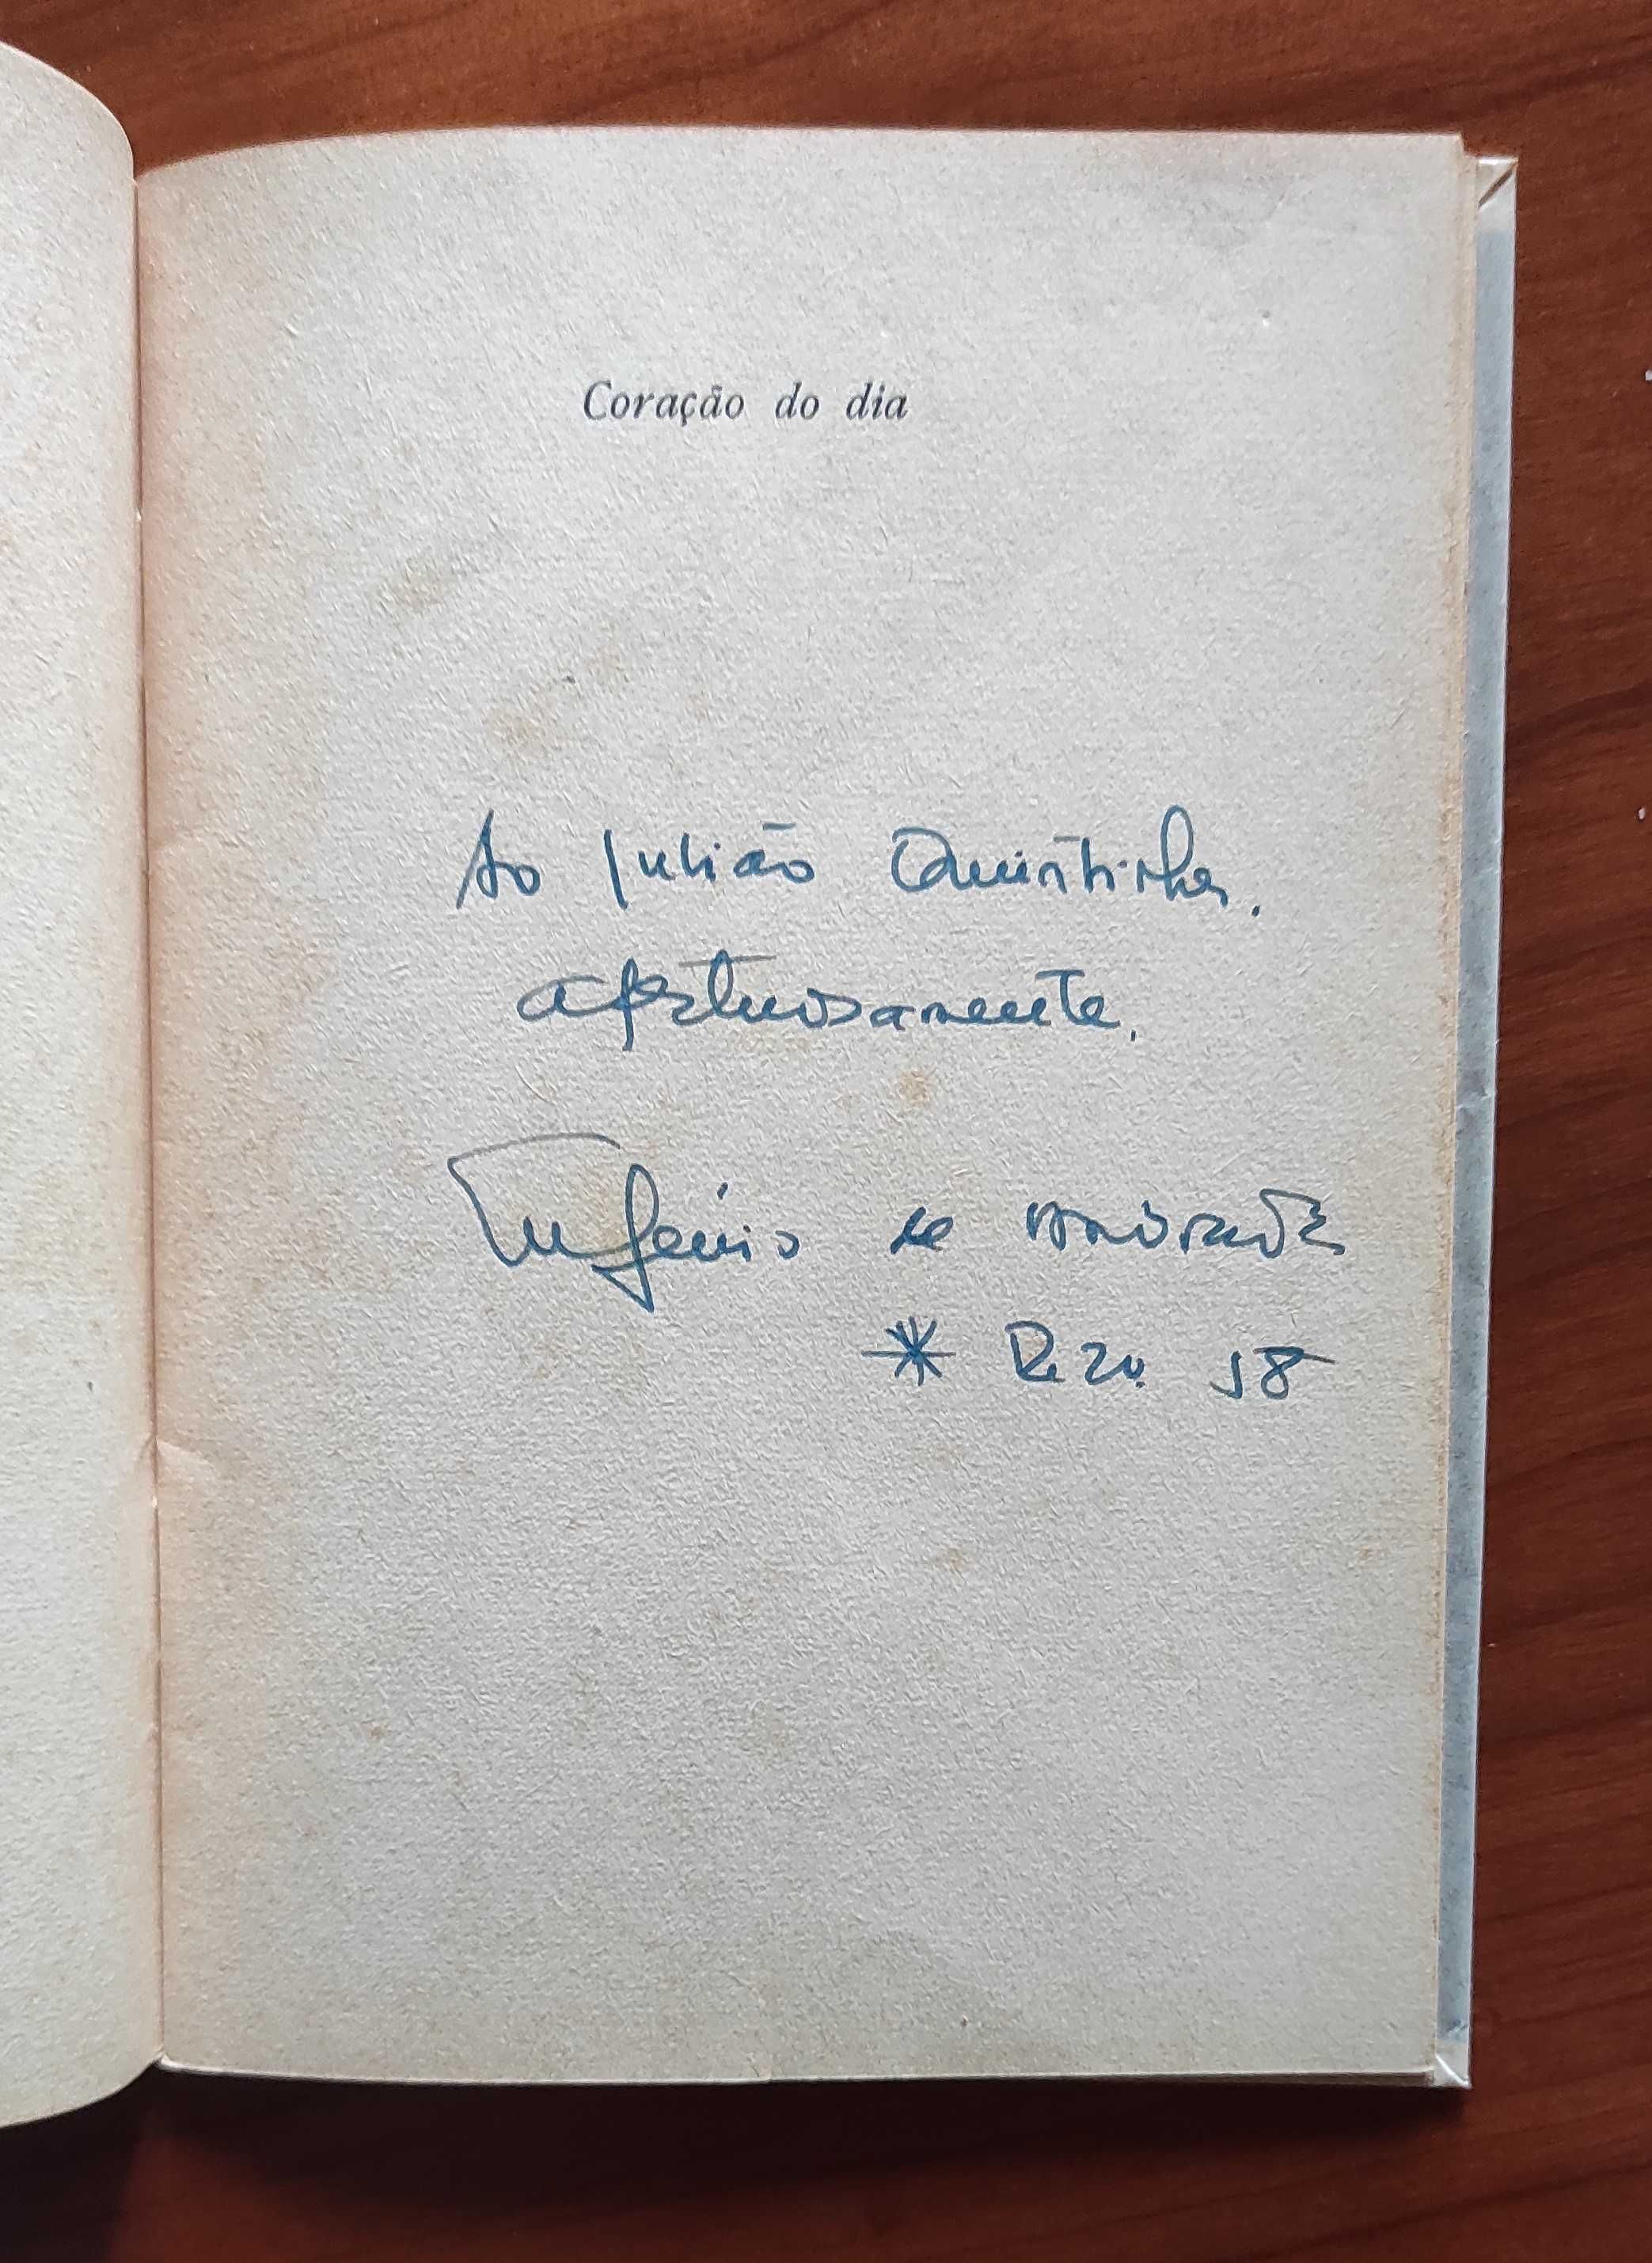 Coração do dia
Ao Julião Quintinha,
afectuosamente,
Eugénio de Andrade
* Dezº. 58